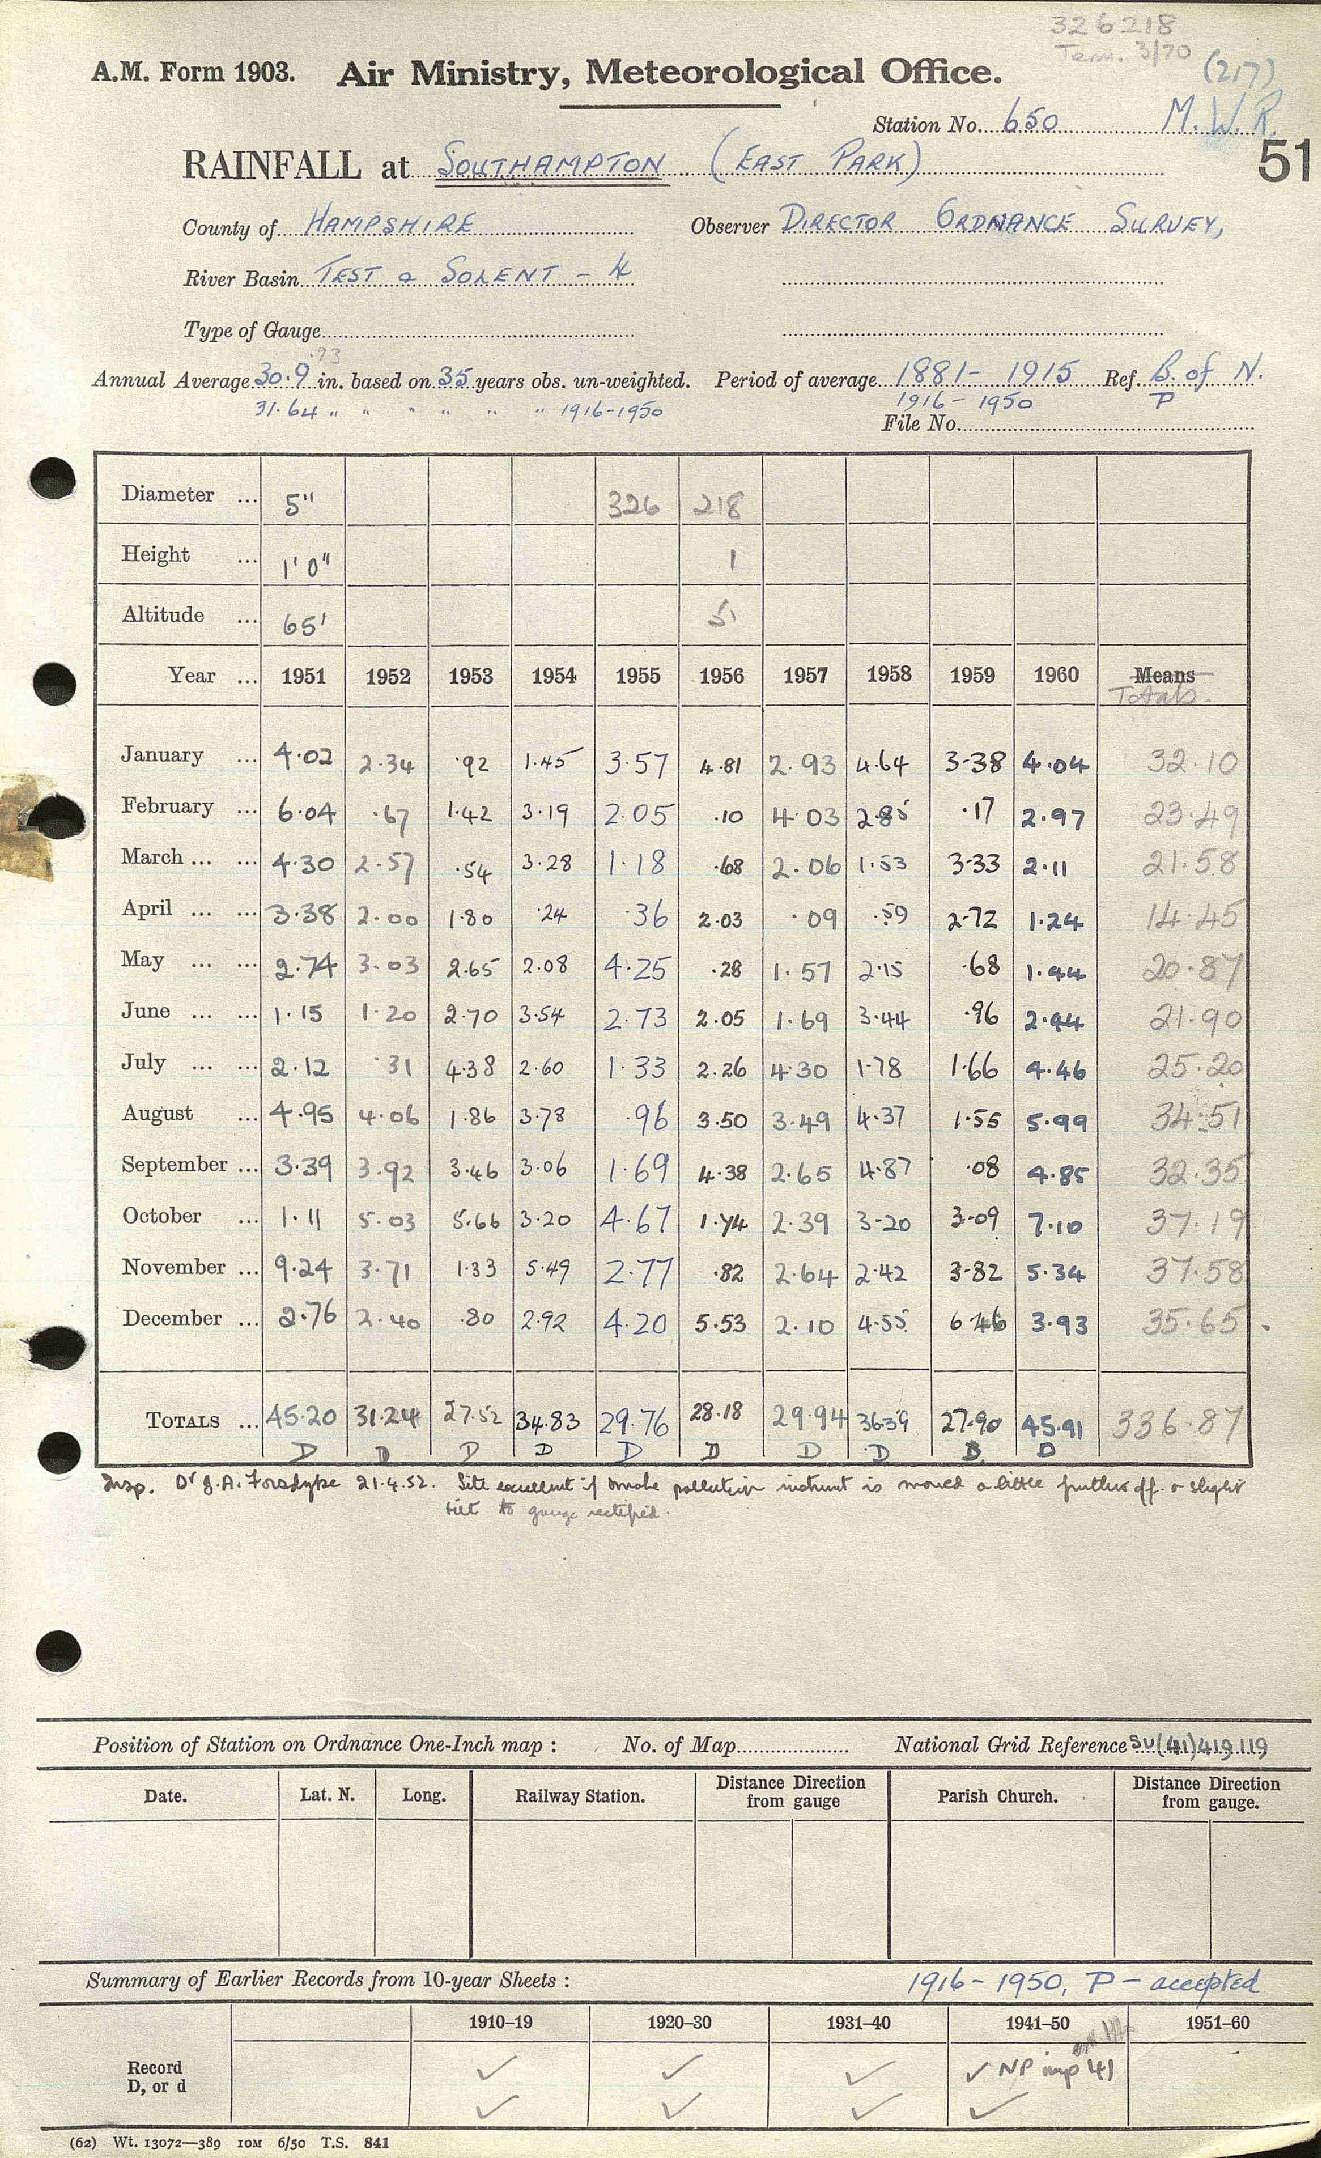 326218
Term. 3/70
A.M. Form 1903. Air Ministry, Meteorological Office. (217)
Station No. 650 M.W.R.
RAINFALL at SOUTHAMPTON (EAST PARK) 51
County of HAMPSHIRE Observer DIRECTOR ORDNANCE SURVEY,
River Basin TEST & SOLENT - 4
Type of Gauge
.93
Annual Average 30.9 in. based on 35 years obs. un-weighted. Period of average 1881-1915 Ref. B. of N.
31.64 " " " " " " 1916-1950 1916-1950 P
File No.
Diameter ... 5" 326 218
Height ... 1'0" 1
Altitude ... 65' 51
Year ... 1951 1952 1953 1954 1955 1956 1957 1958 1959 1960 Means
Totals.
January ... 4.02 2.34 .92 1.45 3.57 4.81 2.93 4.64 3.38 4.04 32.10
February ... 6.04 .67 1.42 3.19 2.05 .10 4.03 2.85 .17 2.97 23.49
March ... ... 4.30 2.57 .54 3.28 1.18 .68 2.06 1.53 3.33 2.11 21.58
April ... ... 3.38 2.00 1.80 .24 .36 2.03 .09 .59 2.72 1.24 14.45
May ... ... 2.74 3.03 2.65 2.08 4.25 .28 1.57 2.15 .68 1.44 20.87
June ... ... 1.15 1.20 2.70 3.54 2.73 2.05 1.69 3.44 .96 2.44 21.90
July ... ... 2.12 .31 4.38 2.60 1.33 2.26 4.30 1.78 1.66 4.46 25.20
August ... 4.95 4.06 1.86 3.78 .96 3.50 3.49 4.37 1.55 5.99 34.51
September ... 3.39 3.92 3.46 3.06 1.69 4.38 2.65 4.87 .08 4.85 32.35
October ... 1.11 5.03 5.66 3.20 4.67 1.74 2.39 3.20 3.09 7.10 37.19
November ... 9.24 3.71 1.33 5.49 2.77 .82 2.64 2.42 3.82 5.34 37.58
December ... 2.76 2.40 .80 2.92 4.20 5.53 2.10 4.55 6.46 3.93 35.65
TOTALS ... 45.20 31.24 27.52 34.83 29.76 28.18 29.94 36.39 27.90 45.91 336.87
D D D D D D D D D D
Insp. Dr J.A. Forsdyke 21.4.52. Site excellent if smoke pollution instrument is moved a little further off. slight
tilt to gauge rectified.
Position of Station on Ordnance One-Inch map : No. of Map National Grid Reference SU(41)419119
Date. Lat. N. Long. Railway Station. Distance Direction from gauge Parish Church. Distance Direction from gauge.
Summary of Earlier Records from 10-year Sheets : 1916-1950, P - accepted
1910–19 1920–30 1931–40 1941–50 1951–60
Record ✓ ✓ ✓ ✓ NP 41
D, or d ✓ ✓ ✓ ✓
(62) Wt. 13072—389 10M 6/50 T.S. 841